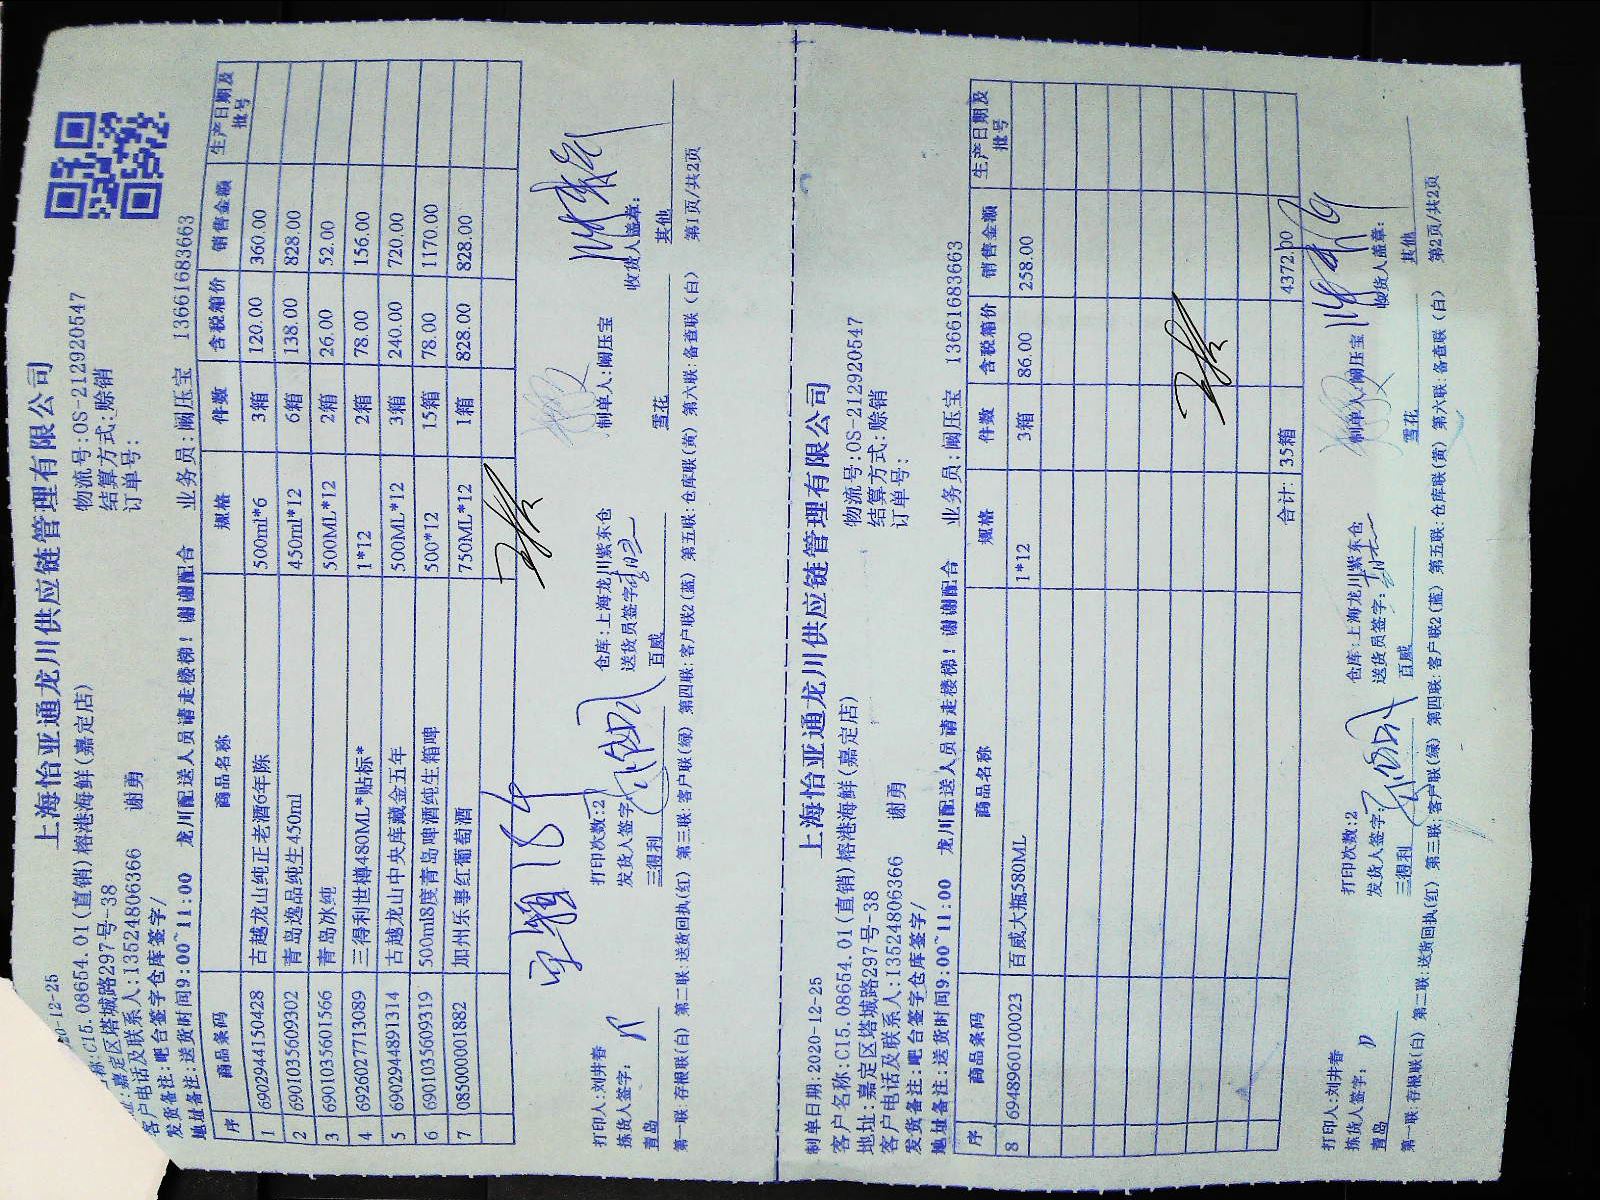 上海怡亚通龙川供应链管理有限公司
20-12-25 物流号:OS-212920547
称:C15.08654.01(直销)榕港海鲜(嘉定店) 结算方式:赊销
址:嘉定区塔城路297号-38 订单号:
客户电话及联系人:13524806366 谢勇
发货备注:吧台签字仓库签字/
地址备注:送货时间9:00~11:00 龙川配送人员请走楼梯！谢谢配合 业务员:阚压宝 13661683663
序 商品条码 商品名称 规格 件数 含税箱价 销售金额 生产日期及批号
1 6902944150428 古越龙山纯正老酒6年陈 500ml*6 3箱 120.00 360.00
2 6901035609302 青岛逸品纯生450ml 450ml*12 6箱 138.00 828.00
3 6901035601566 青岛冰纯 500ML*12 2箱 26.00 52.00
4 6926027713089 三得利世樽480ML*贴标* 1*12 2箱 78.00 156.00
5 6902944891314 古越龙山中央库藏金五年 500ML*12 3箱 240.00 720.00
6 6901035609319 500ml8度青岛啤酒纯生箱啤 500*12 15箱 78.00 1170.00
7 085000001882 加州乐事红葡萄酒 750ML*12 1箱 828.00 828.00
打印人:刘井春 打印次数:2 仓库:上海龙川紫东仓 制单人:阚压宝
拣货人签字: 发货人签字: 送货员签字: 收货人盖章:
青岛 三得利 百威 雪花 其他
第一联:存根联(白) 第二联:送货回执(红) 第三联:客户联(绿) 第四联:客户联2(蓝) 第五联:仓库联(黄) 第六联:备查联(白) 第1页/共2页
上海怡亚通龙川供应链管理有限公司
制单日期:2020-12-25 物流号:OS-212920547
客户名称:C15.08654.01(直销)榕港海鲜(嘉定店) 结算方式:赊销
地址:嘉定区塔城路297号-38 订单号:
客户电话及联系人:13524806366 谢勇
发货备注:吧台签字仓库签字/
地址备注:送货时间9:00~11:00 龙川配送人员请走楼梯！谢谢配合 业务员:阚压宝 13661683663
序 商品条码 商品名称 规格 件数 含税箱价 销售金额 生产日期及批号
8 6948960100023 百威大瓶580ML 1*12 3箱 86.00 258.00
合计: 35箱 4372.00
打印人:刘井春 打印次数:2 仓库:上海龙川紫东仓 制单人:阚压宝
拣货人签字: 发货人签字: 送货员签字: 收货人盖章:
青岛 三得利 百威 雪花 其他
第一联:存根联(白) 第二联:送货回执(红) 第三联:客户联(绿) 第四联:客户联2(蓝) 第五联:仓库联(黄) 第六联:备查联(白) 第2页/共2页